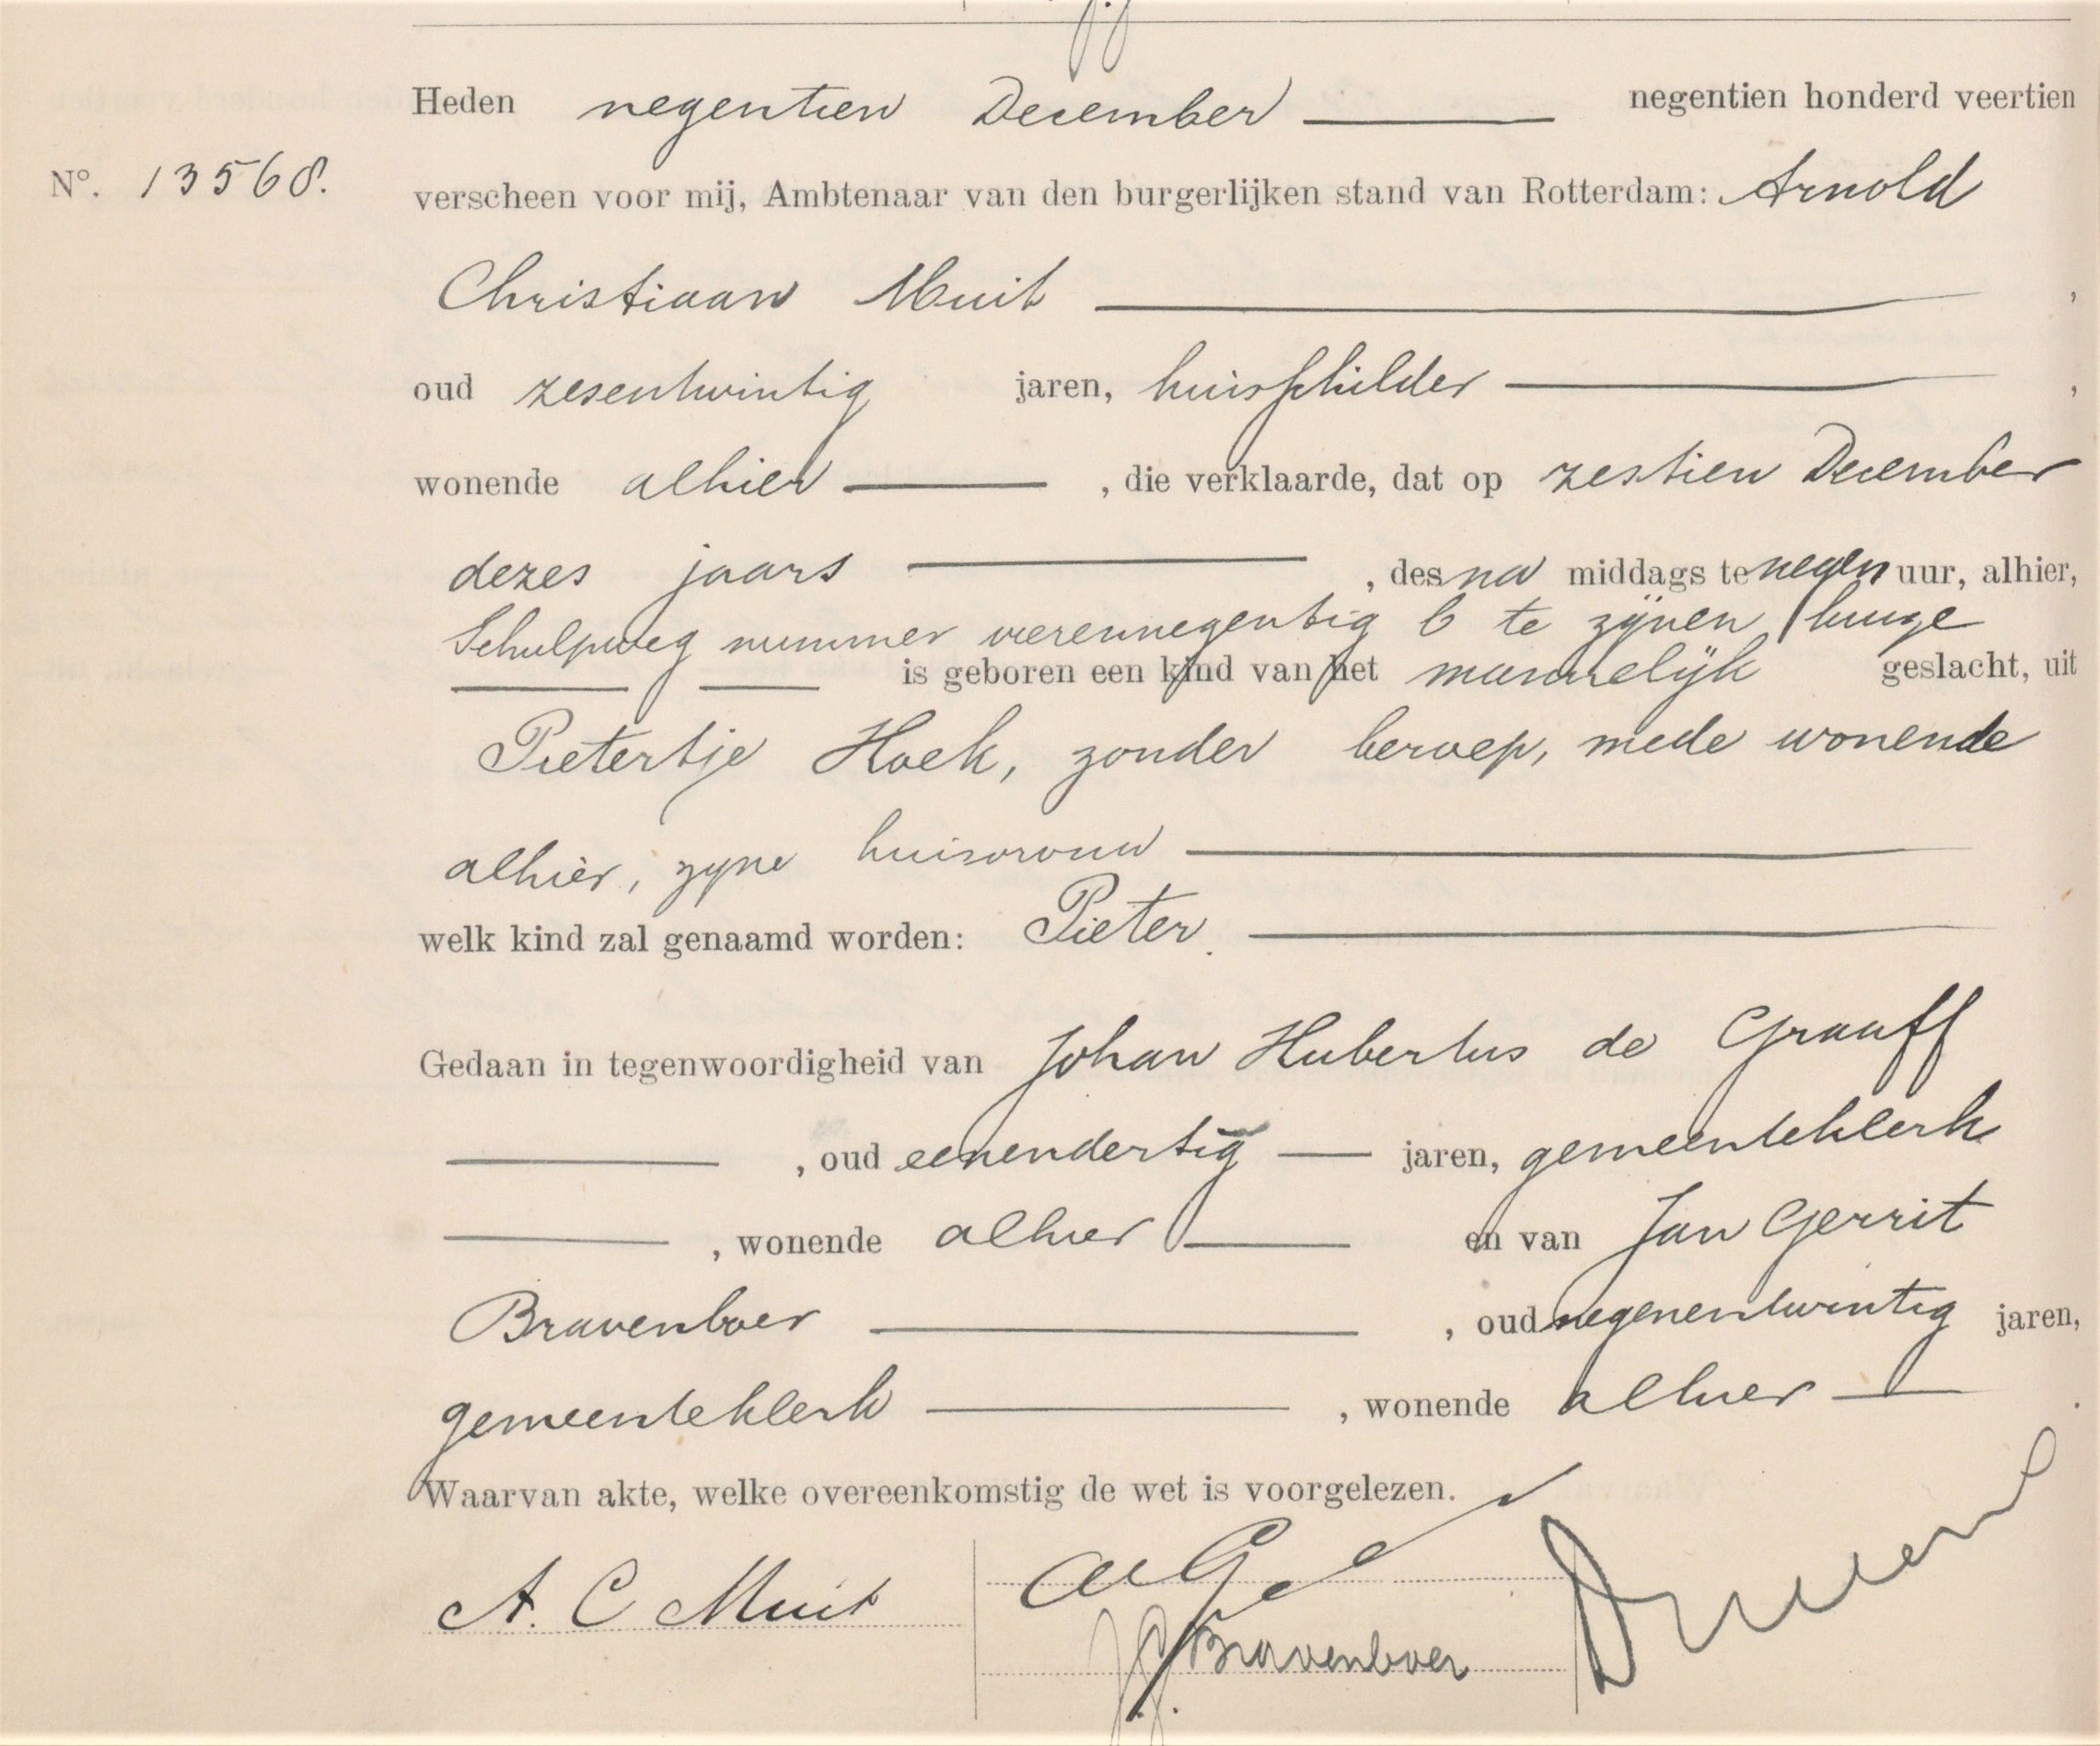 Heden negentien December negentien honderd veertien
Nº. 13568. verscheen voor mij, Ambtenaar van den burgerlijken stand van Rotterdam: Arnold
Christiaan Muit ,
oud zesentwintig jaren, huisschilder ,
wonende alhier , die verklaarde, dat op zestien December
dezes jaars , des na middags te negen uur, alhier,
Schulpweg nummer vierennegentig b te zijnen huize
is geboren een kind van het mannelijk geslacht, uit
Pietertje Hoek, zonder beroep, mede wonende
alhier, zijne huisvrouw
welk kind zal genaamd worden: Pieter.
Gedaan in tegenwoordigheid van Johan Hubertus de Graaff
, oud eenendertig jaren, gemeenteklerk
, wonende alhier en van Jan Gerrit
Bravenboer , oud negenentwintig jaren,
gemeenteklerk , wonende alhier .
Waarvan akte, welke overeenkomstig de wet is voorgelezen.
A. C Muit
JG Bravenboer